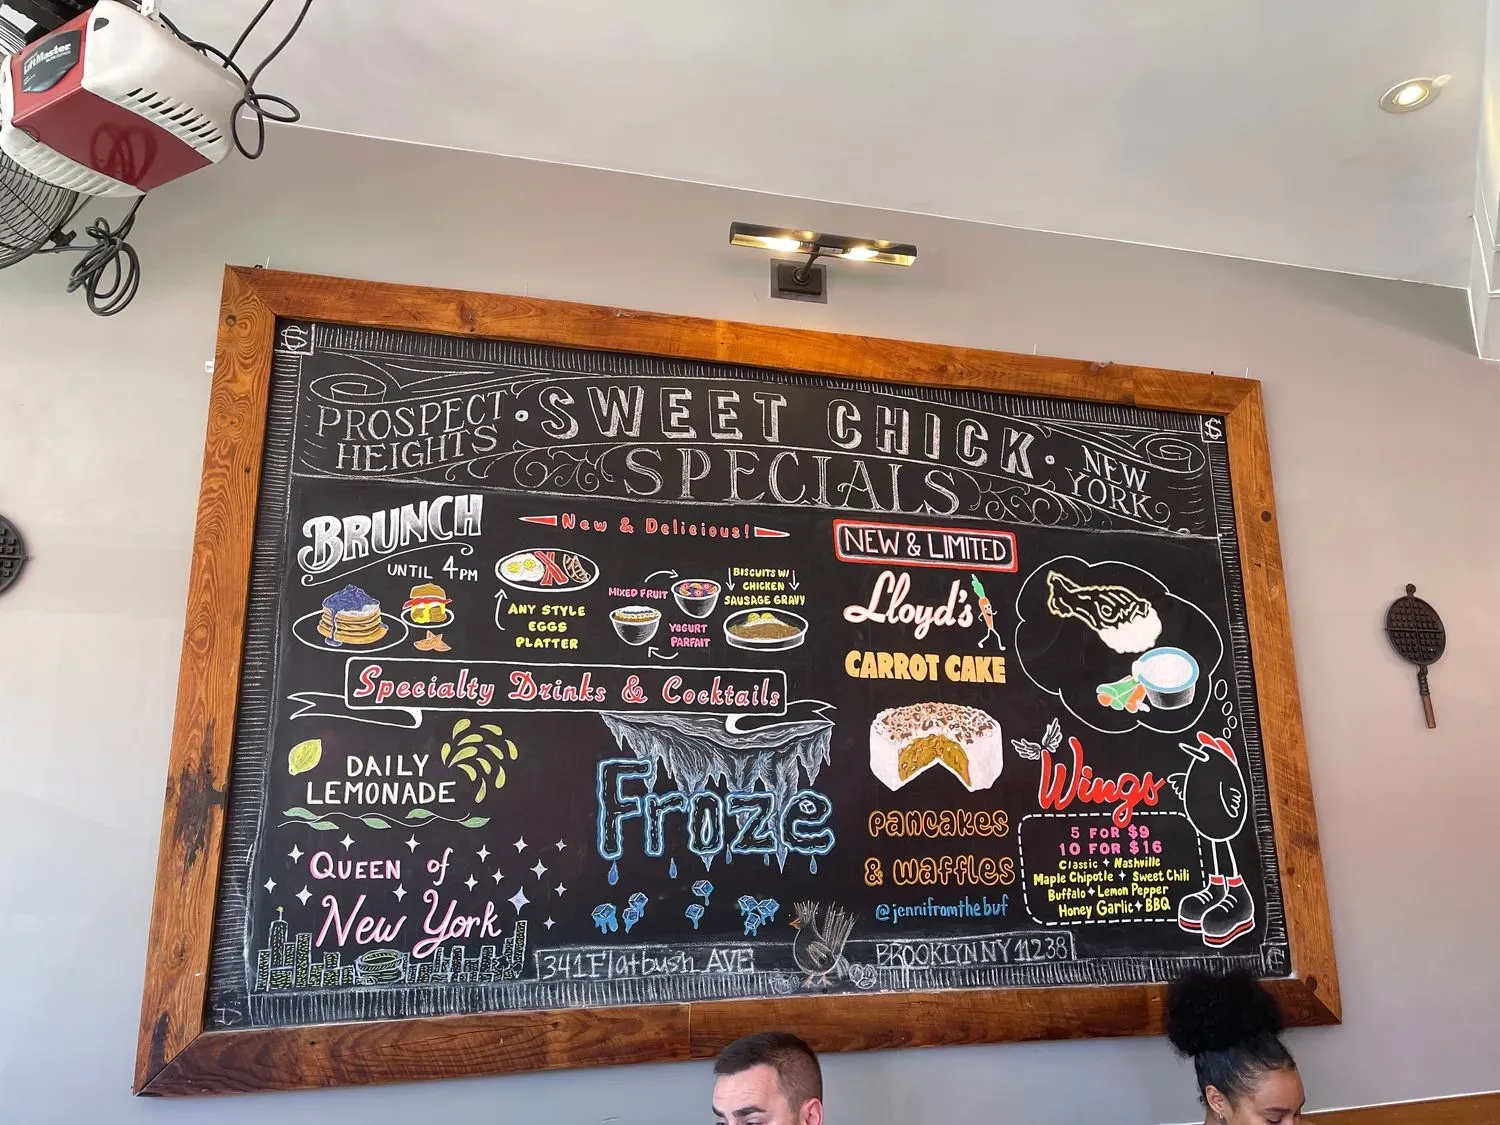 LiftMaster
PROSPECT
HEIGHTS
• SWEET CHICK •
SPECIALS
NEW
YORK
BRUNCH
UNTIL 4PM
New & Delicious!
ANY STYLE
EGGS
PLATTER
MIXED FRUIT
YOGURT
PARFAIT
BISCUITS W/
CHICKEN
SAUSAGE GRAVY
Specialty Drinks & Cocktails
DAILY
LEMONADE
QUEEN of
New York
Froze
NEW & LIMITED
Lloyd's
CARROT CAKE
PANCAKES
& WAFFLES
@jennifromthebuf
Wings
5 FOR $9
10 FOR $16
Classic ✦ Nashville
Maple Chipotle ✦ Sweet Chili
Buffalo ✦ Lemon Pepper
Honey Garlic ✦ BBQ
341 Flatbush AVE
BROOKLYN NY 11238